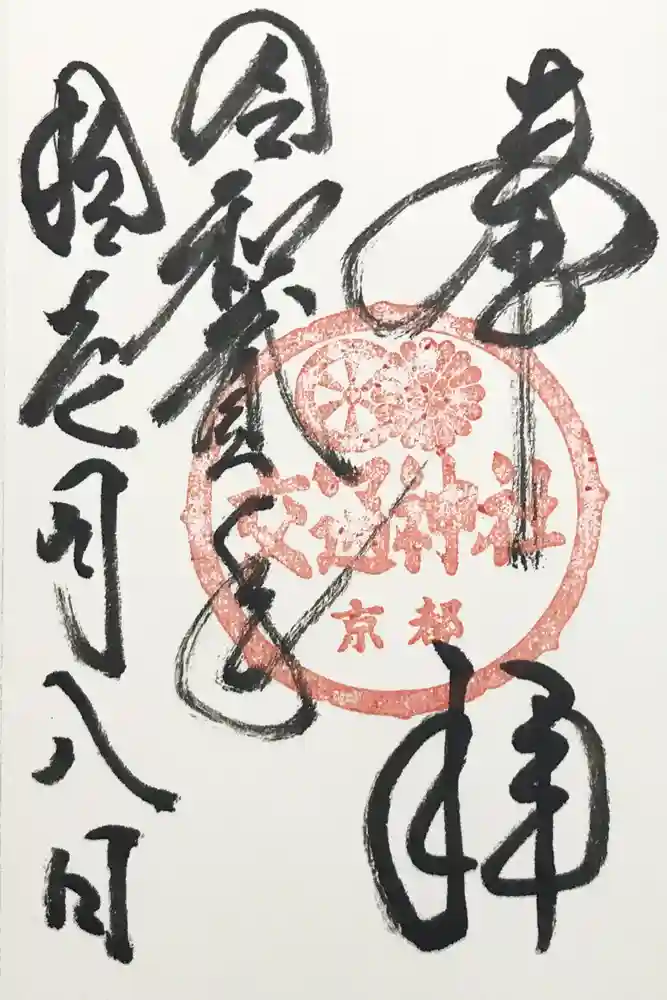 奉拝
交通神社
京都
令和貳年
拾壱月八日